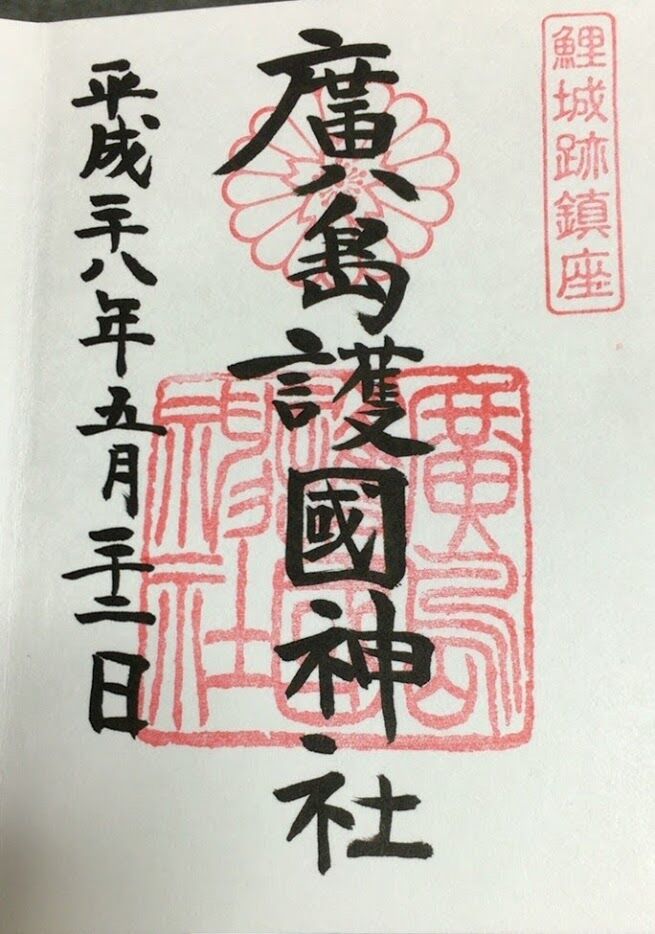 鯉城跡鎮座
廣島護國神社
廣島護國神社
平成二十八年五月二十二日